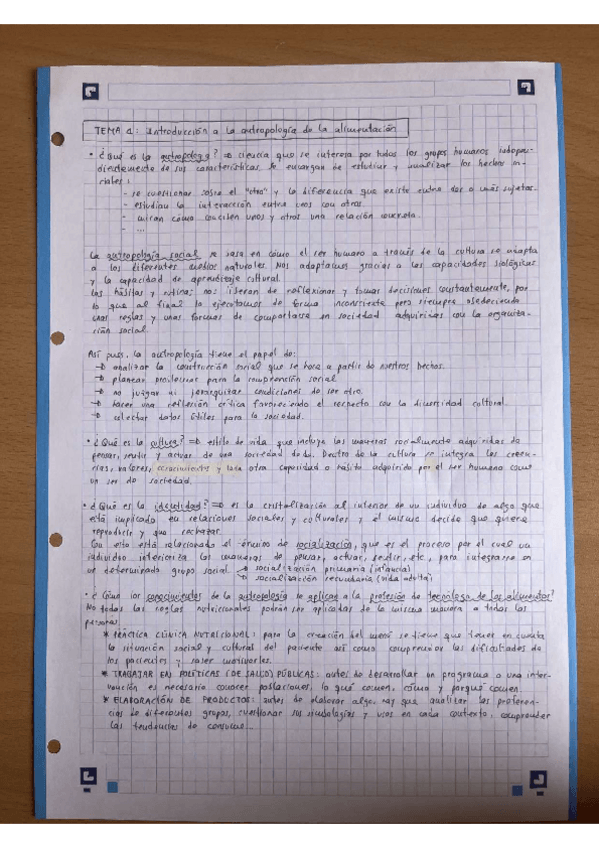 TEMA 1: Introducción a la antropología de la alimentación
• ¿Qué es la antropología? ⇒ ciencia que se interesa por todos los grupos humanos indepen-
dientemente de sus características. Se encargan de estudiar y analizar los hechos so-
ciales:
- se cuestionan sobre el "otro" y la diferencia que existe entre dos o más sujetos.
- estudian la interacción entre unos con otros.
- miran cómo unos y otros una relación concreta.
- ...
La antropología social se basa en cómo el ser humano a través de la cultura se adapta
a los diferentes medios naturales. Nos adaptamos gracias a las capacidades biológicas
y la capacidad de aprendizaje cultural.
Los hábitos y rutinas nos liberan de reflexionar y tomar decisiones constantemente, por
lo que al final lo ejecutamos de forma inconsciente pero siempre obedeciendo
unas reglas y unas formas de comportarse en sociedad adquiridas con la organiza-
ción social.
Así pues, la antropología tiene el papel de:
→ analizar la construcción social que se hace a partir de nuestros hechos.
→ plantear problemas para la comprensión social.
→ no juzgar ni jerarquizar condiciones de ser otro.
→ hacer una reflexión crítica favoreciendo el respeto con la diversidad cultural.
→ colectar datos útiles para la sociedad.
• ¿Qué es la cultura? ⇒ estilo de vida que incluye las maneras socialmente adquiridas de
pensar, sentir y actuar de una sociedad dada. Dentro de la cultura se integra las creen-
cias, valores, conocimientos y toda otra capacidad o hábito adquirido por el ser humano como
un ser de sociedad.
• ¿Qué es la identidad? ⇒ es la cristalización al interior de un individuo de algo que
está implicado en relaciones sociales y culturales y él mismo decide que quiere
reproducir y que rechazar.
Con esto está relacionado el término de socialización, que es el proceso por el cual un
individuo interioriza las maneras de pensar, actuar, sentir, etc, para integrarse en
un determinado grupo social → socialización primaria (infancia)
→ socialización secundaria (vida adulta)
• ¿Cómo los conocimientos de la antropología se aplican a la profesión de tecnología de los alimentos?
No todas las reglas nutricionales podrán ser aplicadas de la misma manera a todas las
personas
* PRÁCTICA CLÍNICA NUTRICIONAL: para la creación del menú se tiene que tener en cuenta
la situación social y cultural del paciente así como comprender las dificultades de
los pacientes y saber motivarles.
* TRABAJAR EN POLÍTICAS (DE SALUD) PÚBLICAS: antes de desarrollar un programa o una inter-
vención es necesario conocer poblaciones, lo qué comen, cómo y porqué comen.
* ELABORACIÓN DE PRODUCTOS: antes de elaborar algo hay que analizar las preferen-
cias de diferentes grupos, cuestionar sus simbologías y usos en cada contexto, comprender
las tendencias de consumo...